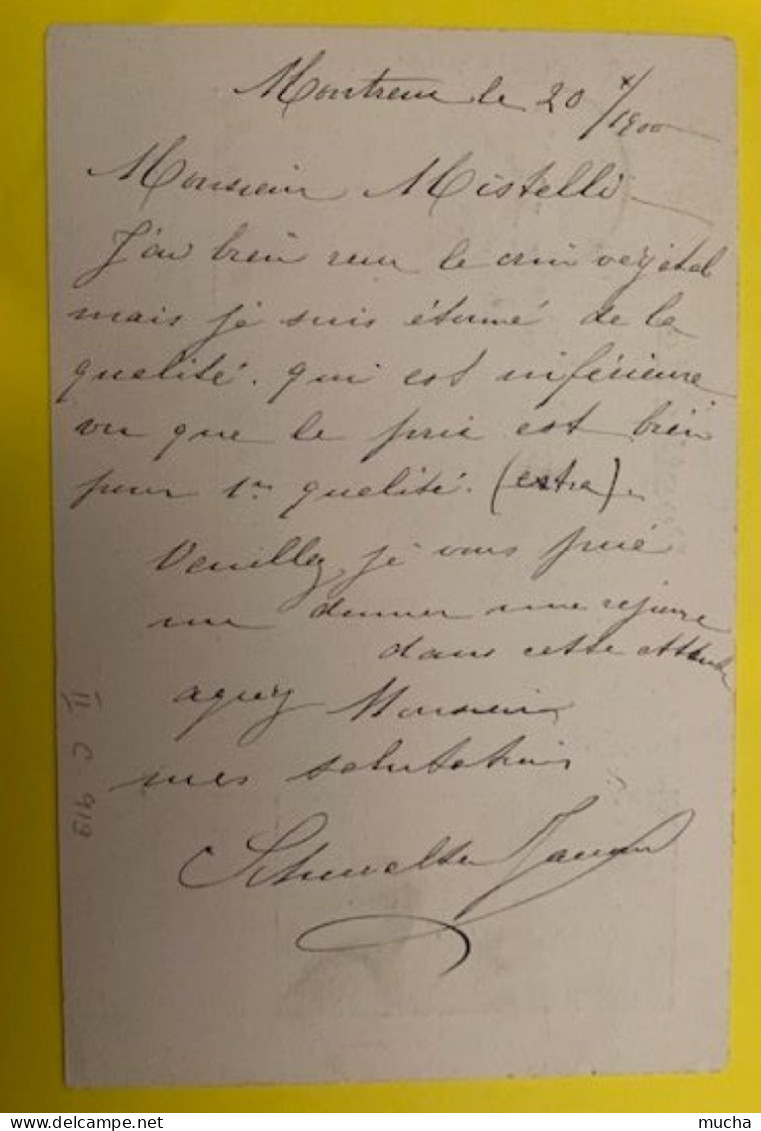 Montreux le 20 x/1900
Monsieur Mistelli
J'ai bien reçu le crin végétal
mais je suis étonné de la
qualité. qui est inférieure
vu que le prix est bien
pour 1re qualité. (extra).
Veuillez je vous prie
me donner une réponse
dans cette attente
agréez Monsieur
mes salutations
II C 919
mucha